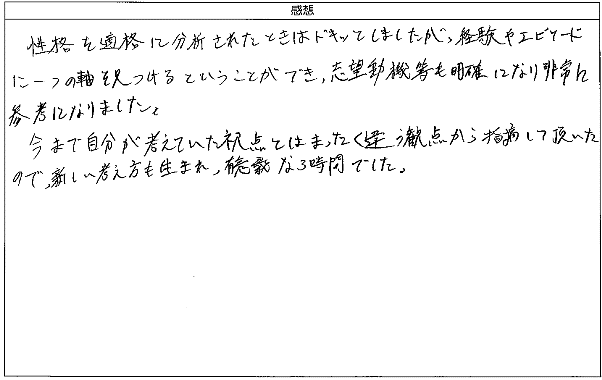 感想
性格を適格に分析されたときはドキッとしましたが、経験やエピソード
に一つの軸を見つけるということができ、志望動機等も明確になり非常に
参考になりました。
今まで自分が考えていた視点とはまったく違う観点から指摘して頂いた
ので、新しい考え方も生まれ、有意義な3時間でした。